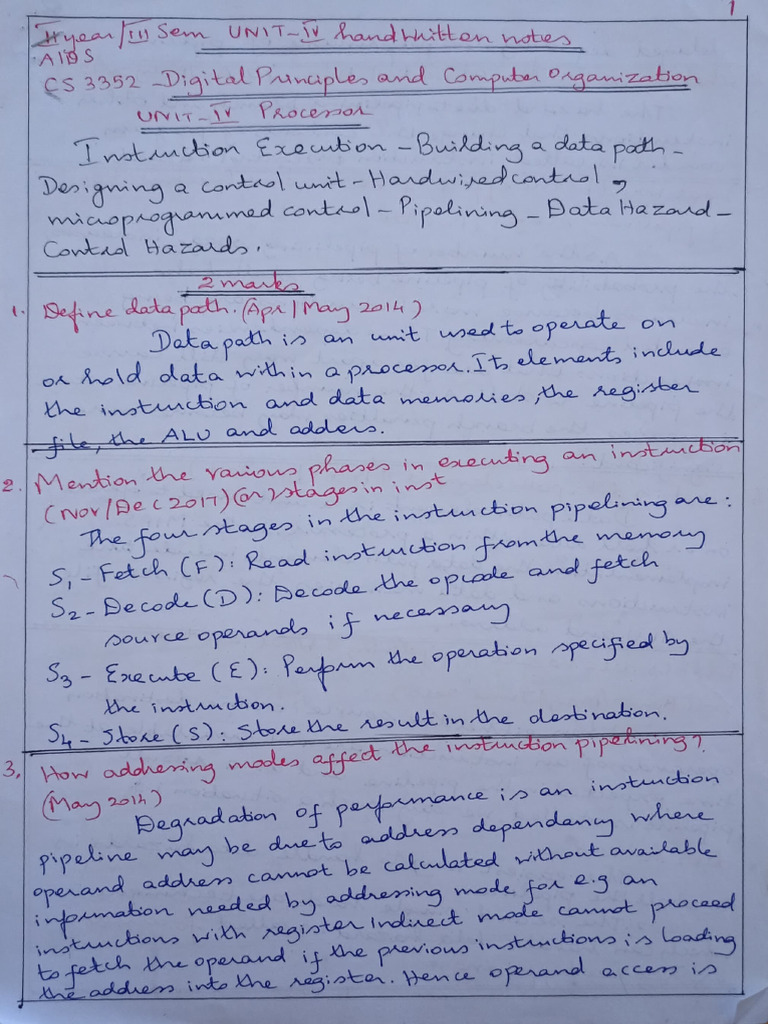 1
II year/III Sem UNIT-IV handwritten notes
AIDS
CS 3352 - Digital Principles and Computer Organization
UNIT-IV Processor
Instruction Execution - Building a data path -
Designing a control unit - Hardwired control,
microprogrammed control - Pipelining - Data Hazard -
Control Hazards.
2 marks
1. Define data path. (Apr/May 2014)
Data path is an unit used to operate on
or hold data within a processor. Its elements include
the instruction and data memories, the register
file, the ALU and adders.
2. Mention the various phases in executing an instruction
(Nov/Dec (2017) (or) stages in inst
The four stages in the instruction pipelining are:
S1 - Fetch (F): Read instruction from the memory
S2 - Decode (D): Decode the opcode and fetch
source operands if necessary
S3 - Execute (E): Perform the operation specified by
the instruction.
S4 - Store (S): Store the result in the destination.
3, How addressing modes affect the instruction pipelining?
(May 2014)
Degradation of performance is an instruction
pipeline may be due to address dependancy where
operand address cannot be calculated without available
information needed by addressing mode for e.g an
instructions with register Indirect mode cannot proceed
to fetch the operand if the previous instructions is loading
the address into the register. Hence operand access is